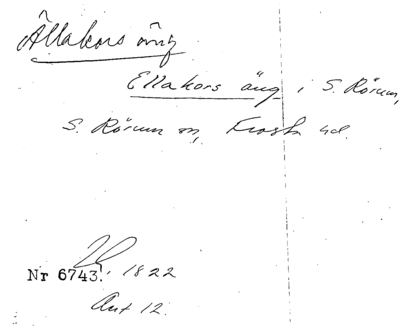 Ällakors äng
Ellakors äng i S. Rörum,
S. Rörum sn, Frosta hd.
Nr 6743. 1822
Akt 12.